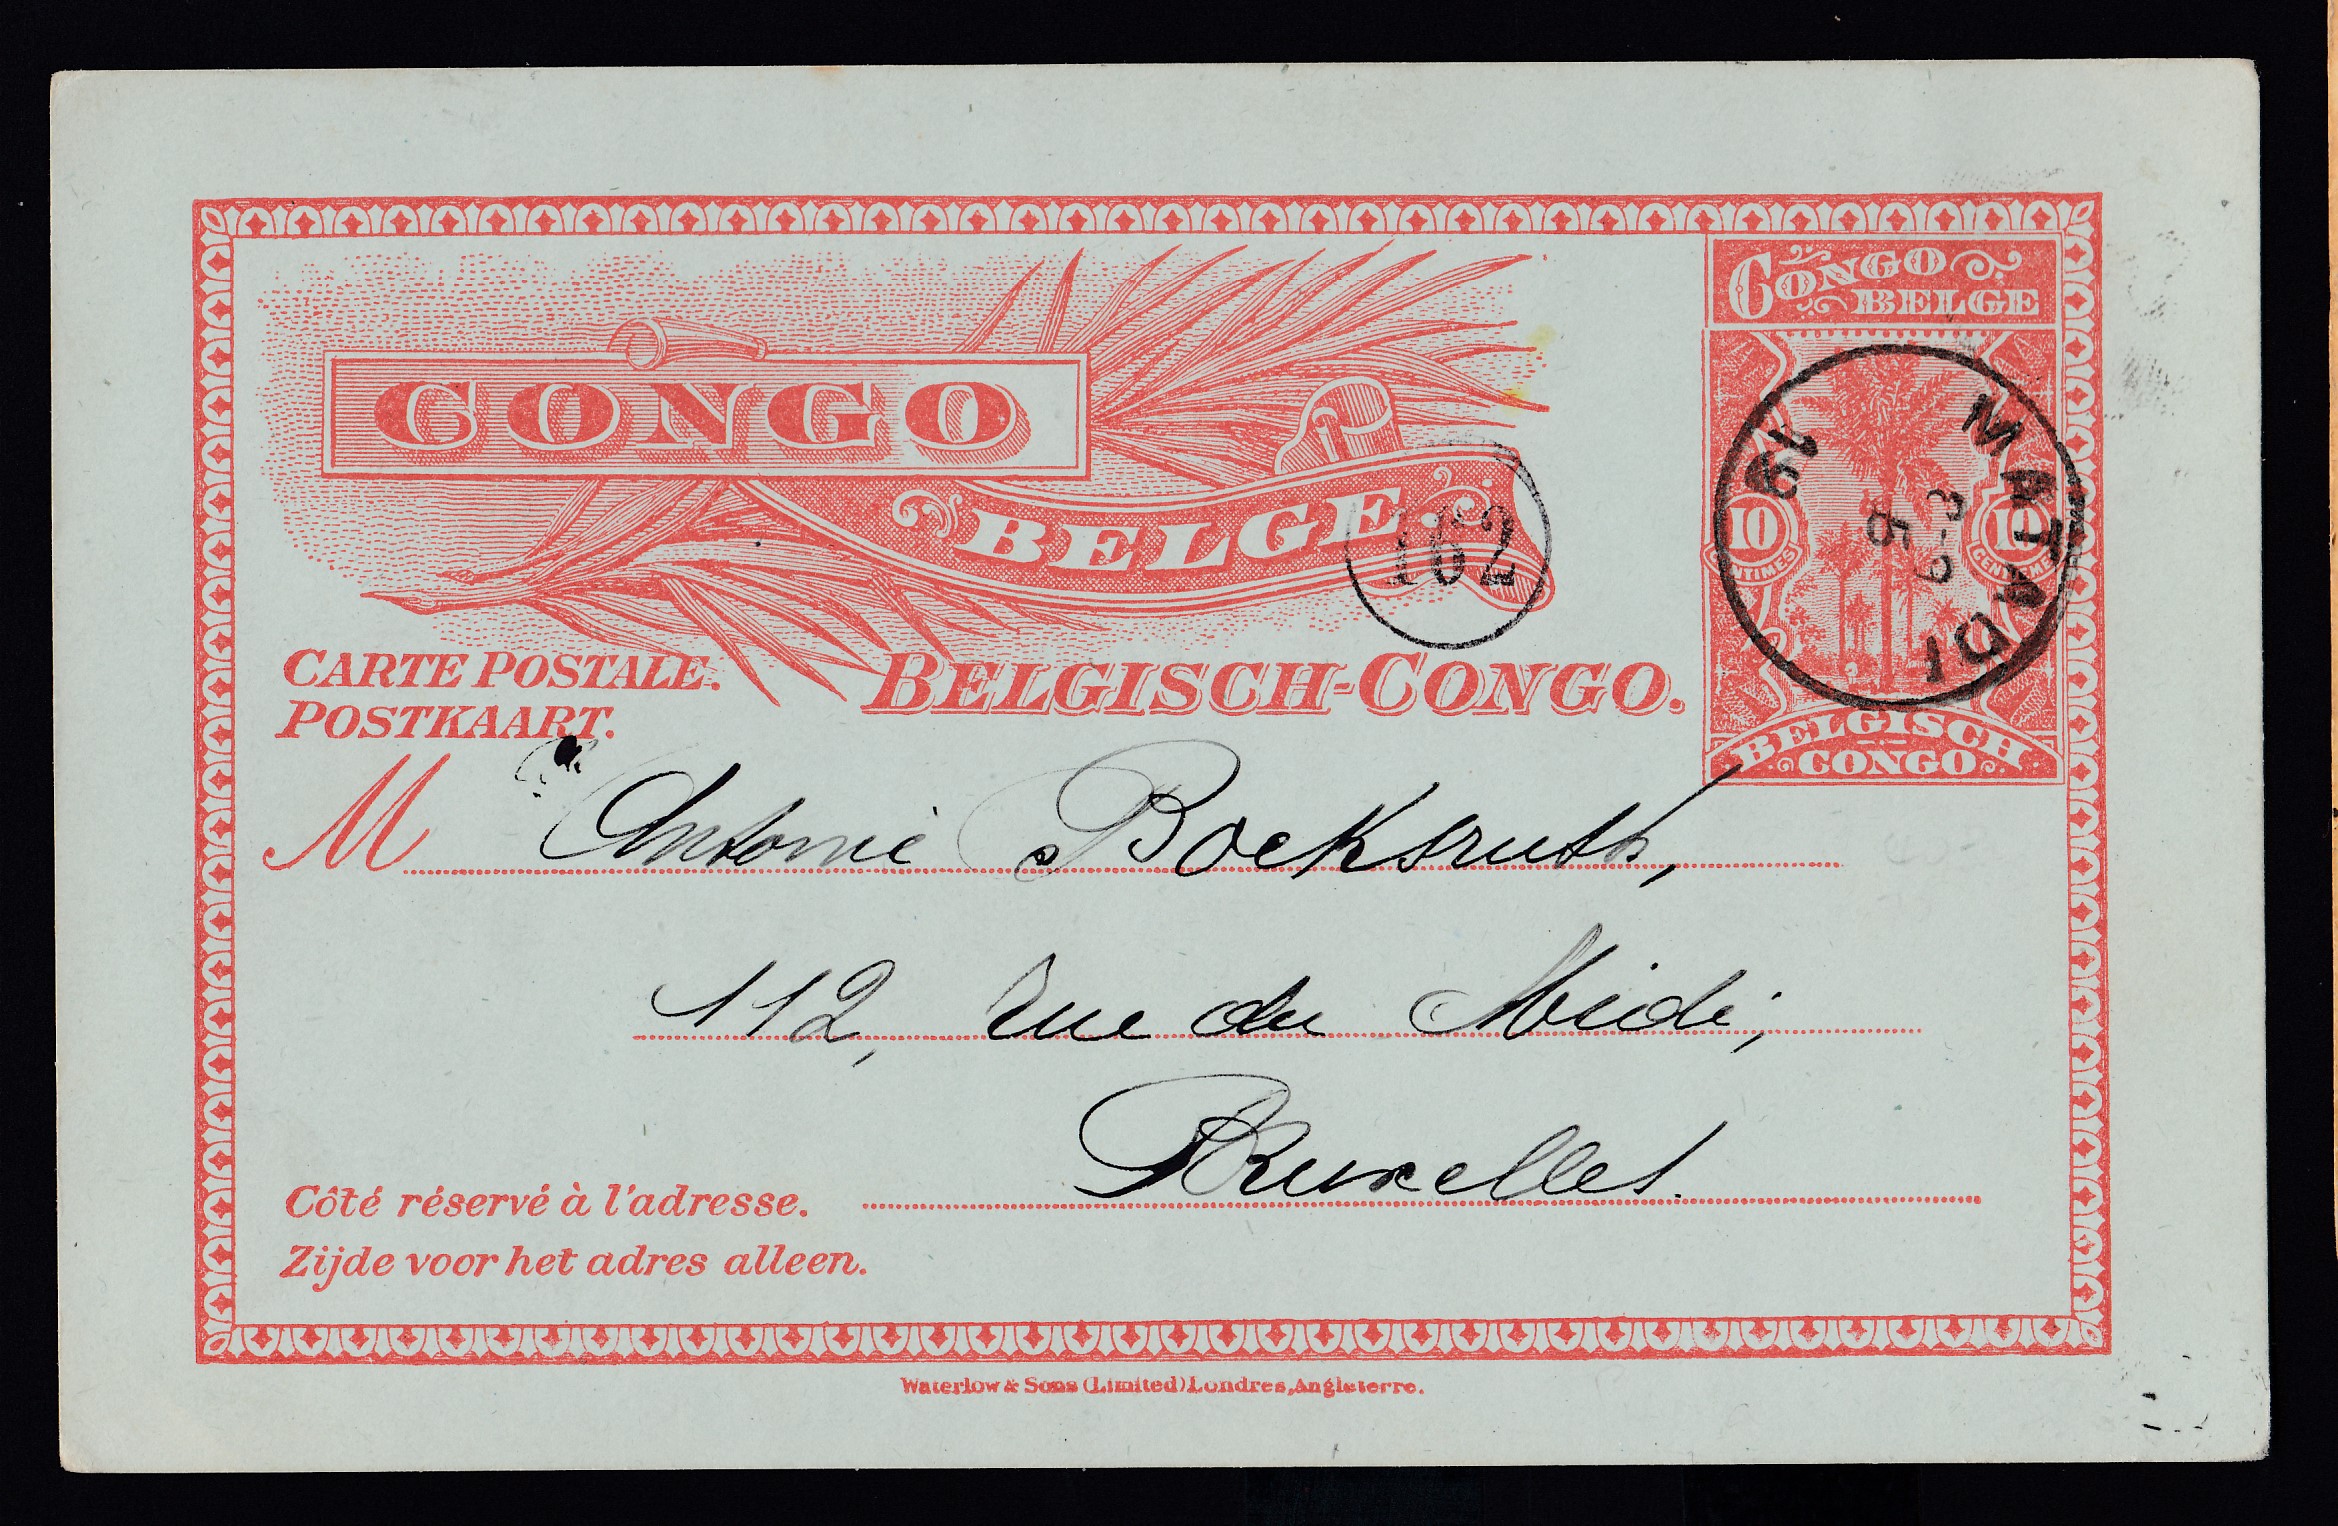 CONGO
BELGE
CONGO
BELGE
10
CENTIMES
10
CENTIMES
BELGISCH
CONGO
MATADI
162
CARTE POSTALE.
POSTKAART.
BELGISCH-CONGO.
M Antonie Boeksruth,
112, rue du Midi,
Bruxelles.
Côté réservé à l'adresse.
Zijde voor het adres alleen.
Waterlow & Sons (Limited) Londres, Angleterre.